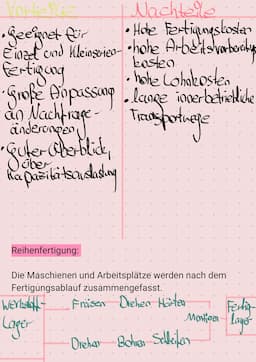 Vorteile
Nachteile
• Geeignet für
Einzel und Kleinserien-
fertigung
• große Anpassung
an Nachfrage-
änderungen
• Guter Überblick,
über
Kapazitätsauslastung
• Hohe Fertigungskosten
• hohe Arbeitsvorbereitungs
kosten
• hohe Lohnkosten
• lange innerbetriebliche
Transportwege
Reihenfertigung:
Die Maschienen und Arbeitsplätze werden nach dem
Fertigungsablauf zusammengefasst.
Werkstoff-
Lager
Fräsen Drehen Härten
Montieren
Fertig-
lager
Drehen Bohren Schleifen